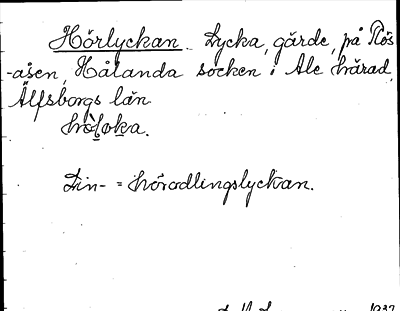 Hörlyckan. Lycka, gärde, på Rös
-åsen, Hålanda socken i Ale härad,
Älfsborgs län.
Lin- = hörodlingslyckan.
1937